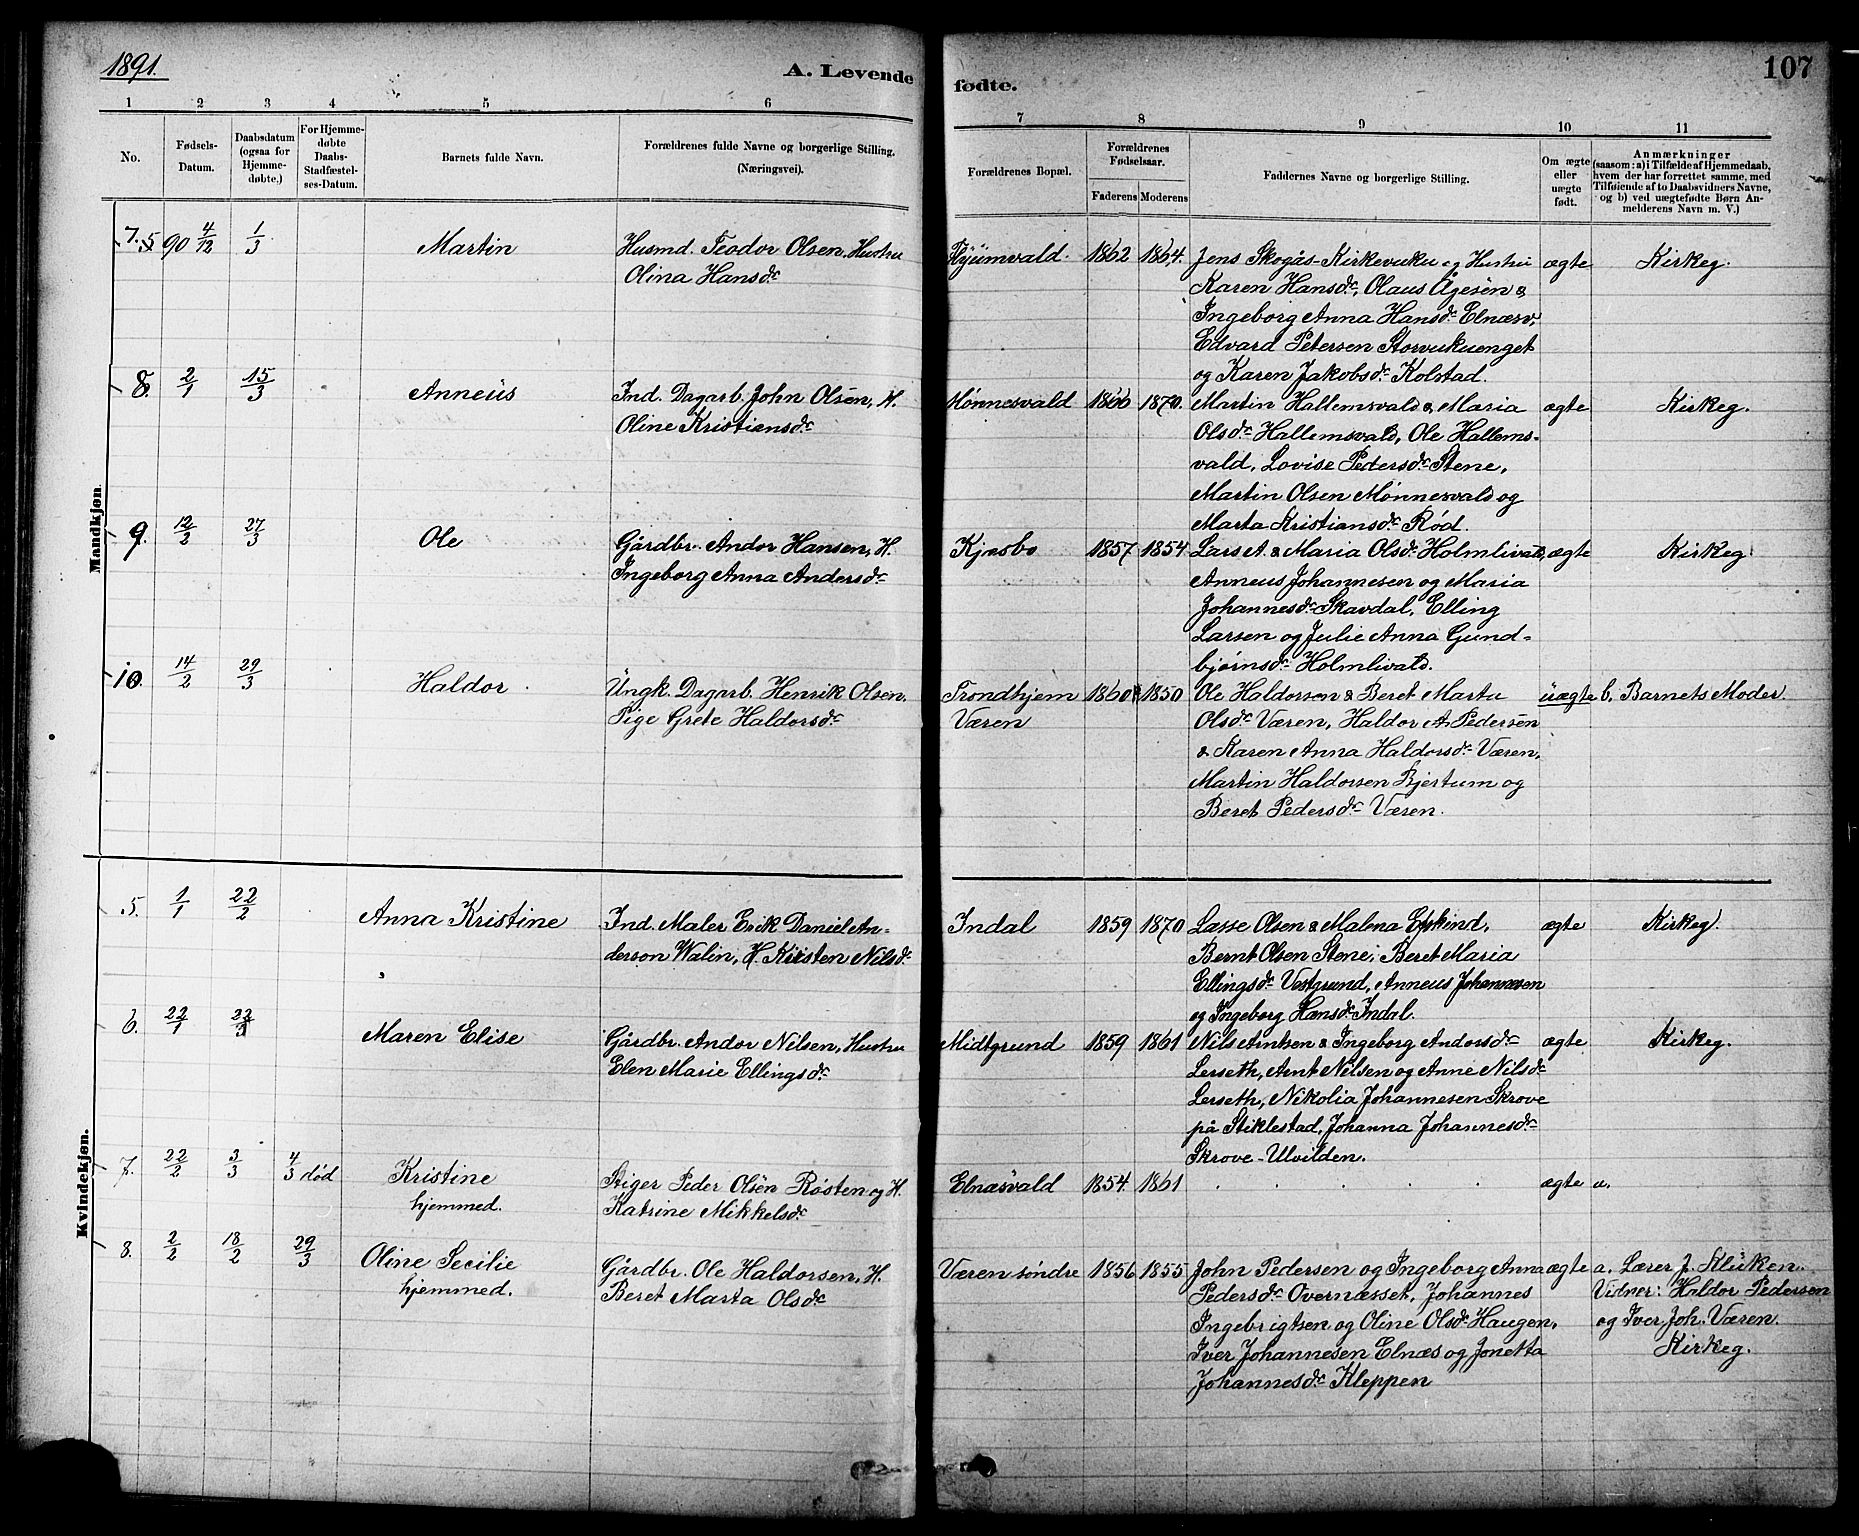 1891.
A. Levende
fødte.
107
1 2 3 4 5 6 7 8 9 10 11
No.
Fødsels-
Datum.
Daabsdatum
(ogsaa for
Hjemme-
døbte.)
For Hjemme-
døbte
Daabs-
Stadfæstel-
ses-Datum.
Barnets fulde Navn.
Forældrenes fulde Navne og borgerlige Stilling.
(Næringsvei).
Forældrenes Bopæl.
Forældrenes
Fødselsaar.
Faderens Moderens
Faddernes Navne og borgerlige Stilling.
Om ægte
eller
uægte
født.
Anmærkninger
(saasom: a) i Tilfælde af Hjemmedaab,
hvem der har forrettet samme, med
Tilføiende af to Daabsvidners Navne,
og b) ved uægtefødte Børn An-
melderens Navn m. V.)
Mandkjøn.
7. 90 4/12 1/3 Martin Husmd. Teodor Olsen, Hustru 1862 1864. Jens Skogås-Kirkevuku og Hustru ægte Kirkeg.
Olina Hansdr. Karen Hansdr, Olaus Ågesen &
Ingeborg Anna Hansdr Elnæsv,
Edvard Petersen Storvukuenget
og Karen Jakobsdr Kolstad.
8. 2/1 15/3 Anneus Ind. Dagarb. John Olsen, H. Mønnesvald 1866 1870. Martin Hallemsvald & Maria ægte Kirkeg.
Oline Kristiansdr Olsdr Hallemsvald, Ole Hallems-
vald, Lovise Pedersdr Stene,
Martin Olsen Mønnesvald og
Marta Kristiansdr Rød.
9. 12/2 27/3 Ole Gårdbr. Andor Hansen, H. Kjæsbo 1857 1854. Lars A. & Maria Olsdr Holmlivald, ægte Kirkeg.
Ingeborg Anna Andersdr Anneus Johannesen og Maria
Johannesdr Skavdal, Elling
Larsen og Julie Anna Gund-
bjørnsdr Holmlivald.
10. 14/2 29/3 Haldor. Ungk. Dagarb. Henrik Olsen. Trondhjem 1860 1850 Ole Haldorsen & Beret Marta uægte b. Barnets Moder
Pige Grete Haldorsdr Væren Olsdr Væren, Haldor A. Pedersen
& Karen Anna Haldorsdr Væren,
Martin Haldorsen Bjertum og
Beret Pedersdr Væren.
Kvindekjøn.
5. 1/1 22/2 Anna Kristine Ind. Maler Erik Daniel An- Indal 1859 1870 Lasse Olsen & Malena ægte Kirkeg.
derson Walin, H. Kirsten Nilsdr Bernt Olsen Stene, Beret Maria
Ellingsdr Vestgrund, Anneus Johannesen
og Ingeborg Hansdr Indal.
6. 22/1 22/3 Maren Elise Gårdbr. Andor Nilsen, Hustru Midtgrund 1859 1861 Nils Arntsen & Ingeborg Andorsdr ægte Kirkeg.
Elen Marie Ellingsdr. Lerseth, Arnt Nilsen og Anne Nilsdr
Lerseth, Nikolia Johannesen Skrove
på Stiklestad, Johanna Johannesdr
Skrove-Ulvilden.
7. 22/2 3/3 4/3 død Kristine Stiger Peder Olsen Røsten og H. Elnæsvald 1854. 1861 ægte a.
hjemmed. Katrine Mikkelsdr.
8. 2/2 18/2 29/3 Oline Secilie Gårdbr. Ole Haldorsen, H. Væren søndre 1856 1855 John Pedersen og Ingeborg Anna ægte a. Lærer J. Klüken.
hjemmed. Beret Marta Olsdr Pedersdr Overnæsset, Johannes Vidner: Haldor Pedersen
Ingebrigtsen og Oline Olsdr Haugen, og Iver Joh. Væren.
Iver Johannesen Elnæs og Jonetta Kirkeg.
Johannesdr Kleppen